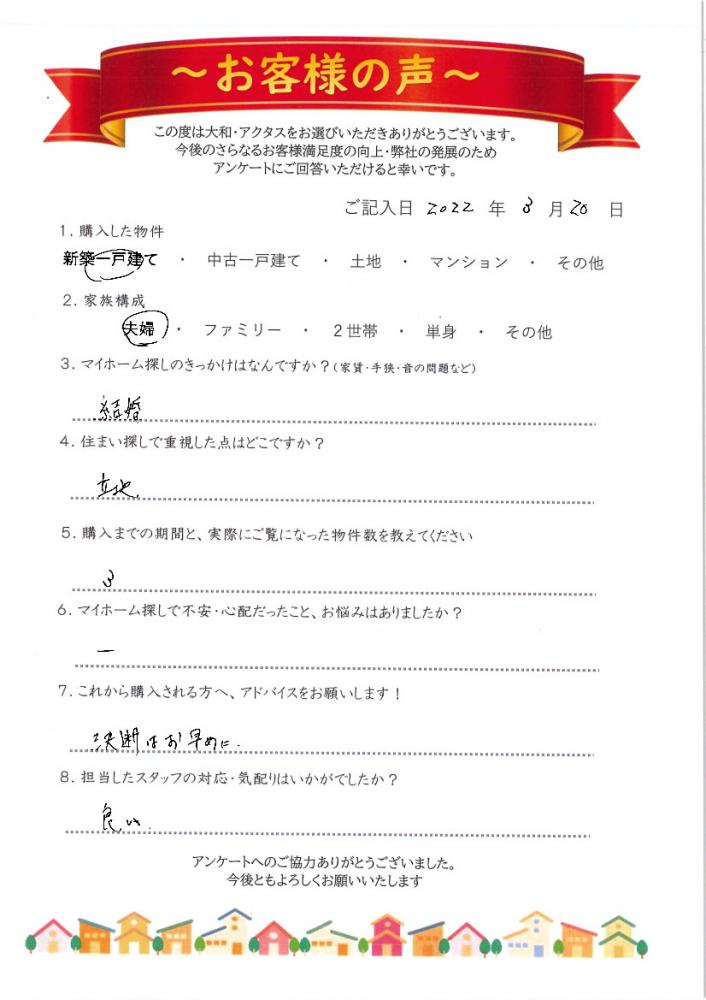 ～お客様の声～
この度は大和・アクタスをお選びいただきありがとうございます。
今後のさらなるお客様満足度の向上・弊社の発展のため
アンケートにご回答いただけると幸いです。
ご記入日 2022 年 3 月 20 日
1．購入した物件
新築一戸建て ・ 中古一戸建て ・ 土地 ・ マンション ・ その他
2．家族構成
夫婦 ・ ファミリー ・ 2世帯 ・ 単身 ・ その他
3．マイホーム探しのきっかけはなんですか？（家賃・手狭・音の問題など）
結婚
4．住まい探しで重視した点はどこですか？
立地.
5．購入までの期間と、実際にご覧になった物件数を教えてください
3
6．マイホーム探しで不安・心配だったこと、お悩みはありましたか？
ー
7．これから購入される方へ、アドバイスをお願いします！
決断はお早めに.
8．担当したスタッフの対応・気配りはいかがでしたか？
良い.
アンケートへのご協力ありがとうございました。
今後ともよろしくお願いいたします